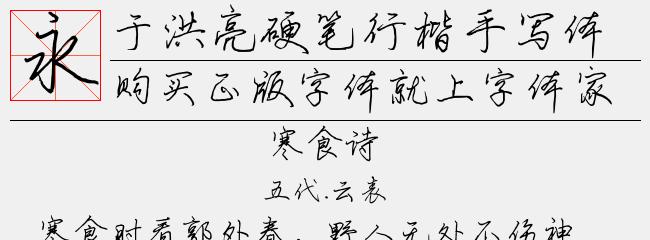 永
于洪亮硬笔行楷手写体
购买正版字体就上字体家
寒食诗
五代.云表
寒食时看郭外春，野人无处不伤神